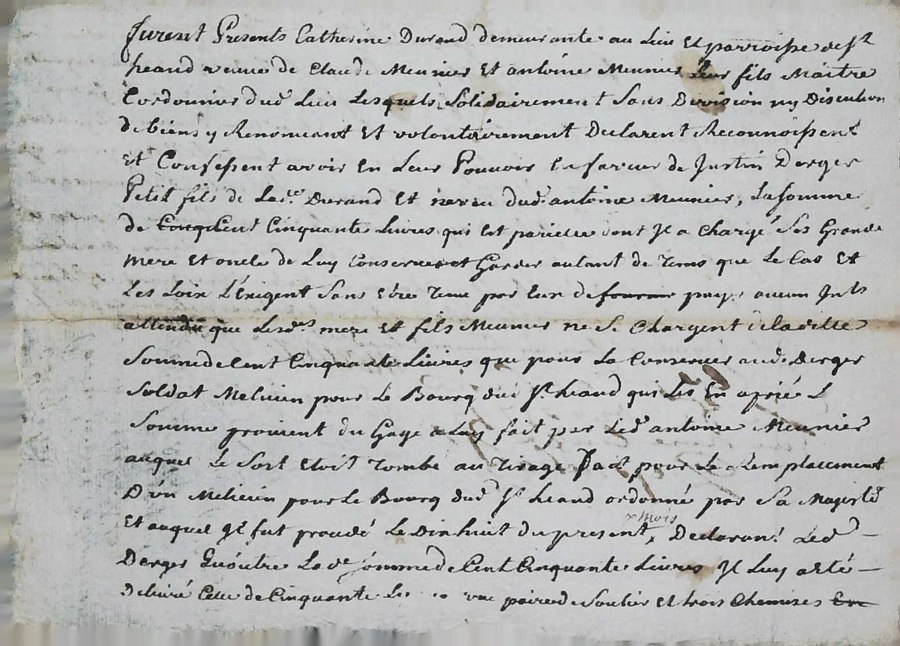 furent Presents Catherine Durand demeurante au Lieu Et parroisse de St
heand veuve de Claude Meunier Et antoine Meunier Leur fils Maitre
Cordonnier dud. Lieu Lesquels Solidairement Sans Division ny Discution
de biens y Renoncant Et volontairement Declarent Reconnoissent
Et Confessent avoir En Leur Pouvoir En faveur de Justin Derger
Petit fils de Lad.te Durand Et neveu dud. antoine Meunier, La somme
de Cent Cinquante Livres qui Est pareille dont Jl a Chargé Ses Grande
mere Et oncle de Luy Conserver et Garder autant de Tems que Le Cas Et
Les Loix L'Exigent Sans Etre Tenu par Eux de payer aucun Jnts
attendu que Lesd.s mere Et fils Meunier ne Se Chargent de laditte
Somme de Cent Cinquante Livres que pour La Conserver aud. Derger
Soldat Melicien pour Le Bourg dud St heand qui Les En a priée L
Somme provient du Gage a Luy fait par Led antoine Meunier
auquel Le Sort Etoit Tombé au Tirage pour Le Remplacement
D'un Melicien pour Le Bourg dud St heand ordonné par Sa Magesté
Et auquel Jl fut procedé Le Dixhuit du present, Declarant Led
mois
Derger Qu'outre La de somme de Cent Cinquante Livres Jl Luy a eté
delivré Celle de Cinquante une paire de Soulier Et trois Chemises